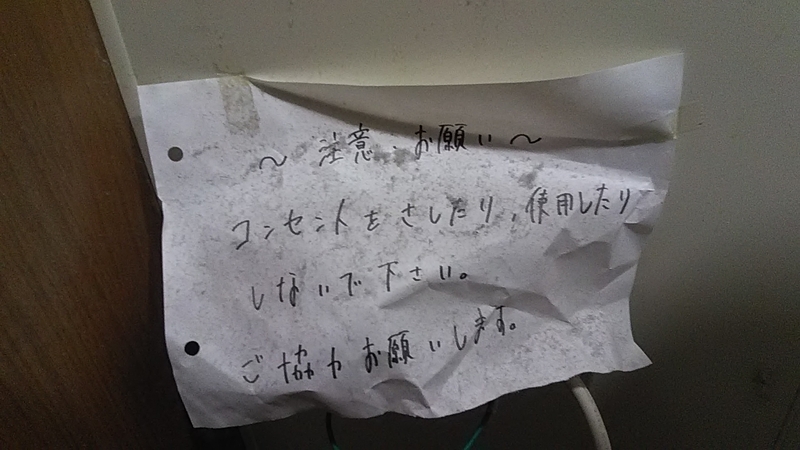 ～ 注意・お願い ～
コンセントをさしたり、使用したり
しないで下さい。
ご協力お願いします。